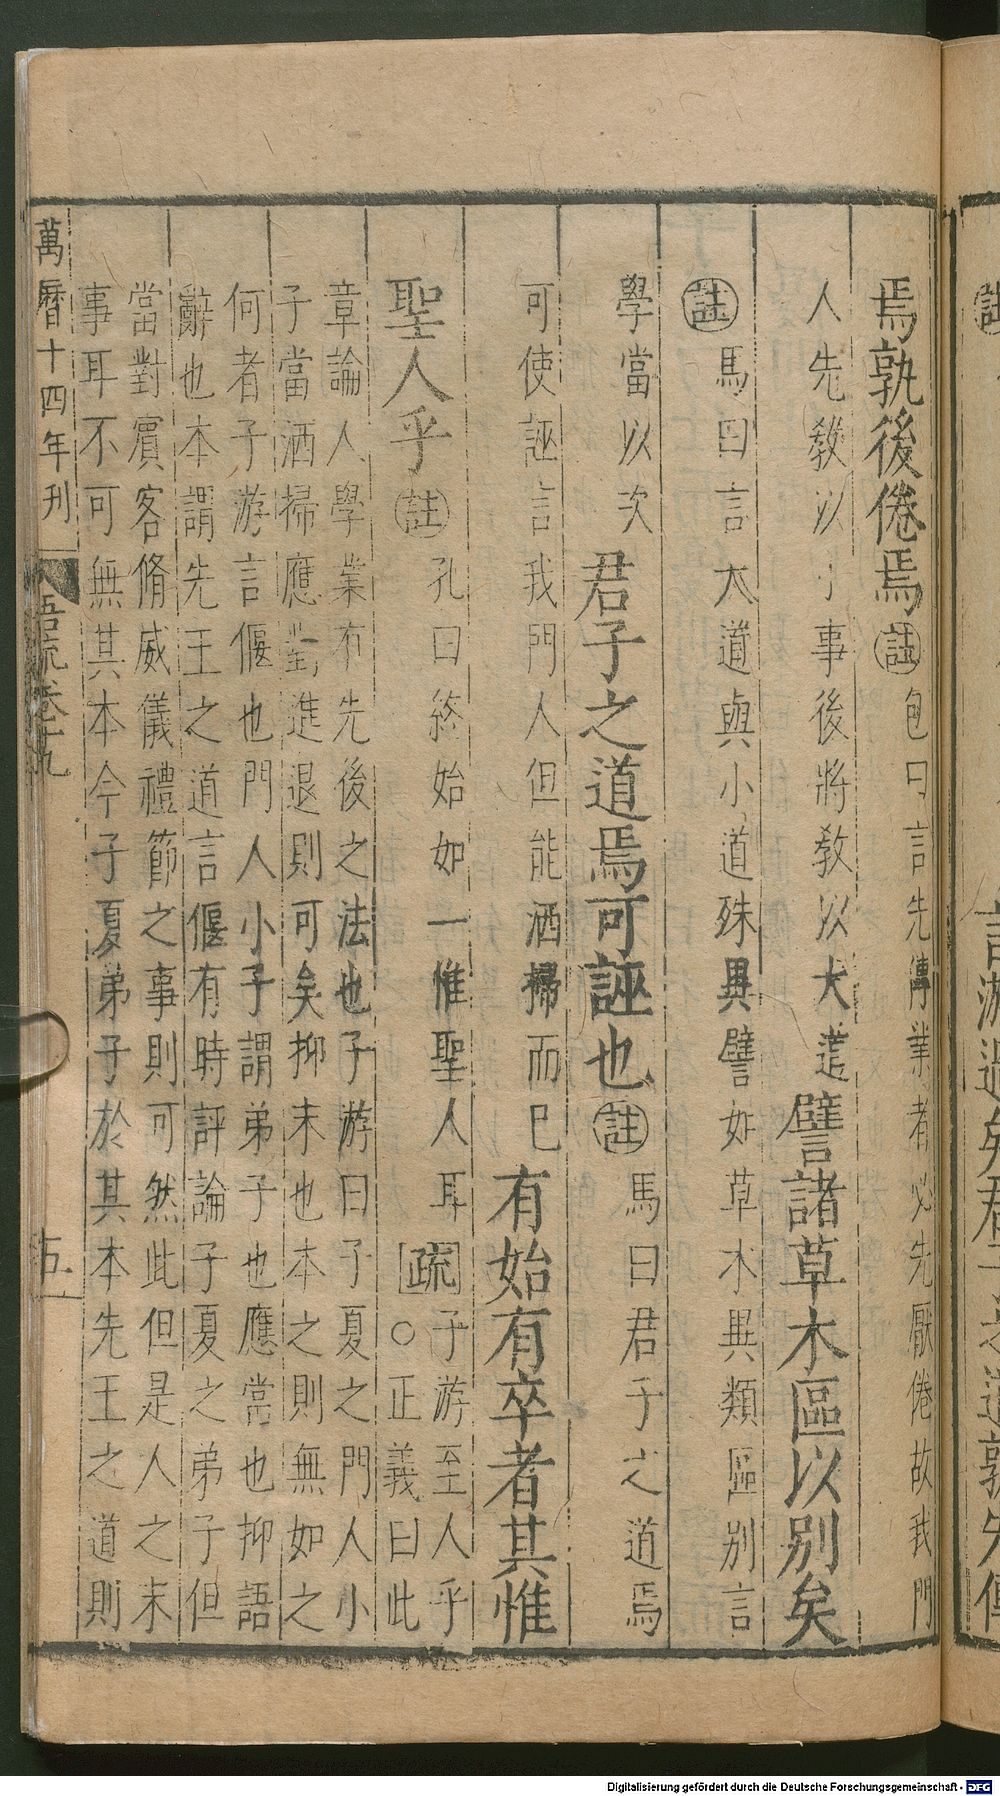 焉孰後倦焉註包曰言先傳業者必先厭倦故我門
人先教以小事後將教以大道譬諸草木區以别矣
註馬曰言大道與小道殊異譬如草木異類區别言
學當以次君子之道焉可誣也註馬曰君子之道焉
可使誣言我門人但能洒掃而已有始有卒者其惟
聖人乎註孔曰終始如一惟聖人耳疏子游至人乎
○正義曰此
章論人學業有先後之法也子游曰子夏之門人小
子當洒掃應對進退則可矣抑末也本之則無如之
何者子游言偃也門人小子謂弟子也應當也抑語
辭也本謂先王之道言偃有時評論子夏之弟子但
當對賓客脩威儀禮節之事則可然此但是人之末
事耳不可無其本今子夏弟子於其本先王之道則
萬曆十四年刊
語疏卷十九
五
言游過矣君子之道孰先傳
Digitalisierung gefördert durch die Deutsche Forschungsgemeinschaft - DFG